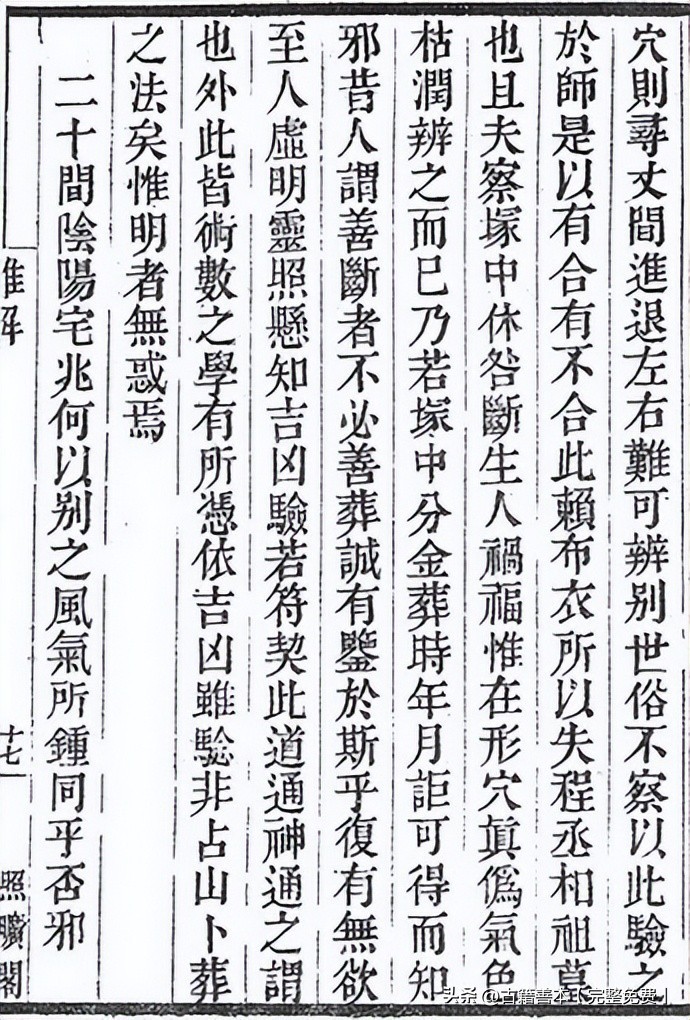 穴則尋丈間進退左右難可辨别世俗不察以此驗之
於師是以有合有不合此賴布衣所以失程丞相祖墓
也且夫察塚中休咎斷生人禍福惟在形穴眞僞氣色
枯潤辨之而已乃若塚中分金葬時年月詎可得而知
邪昔人謂善斷者不必善葬誠有鑒於斯乎復有無欲
至人虛明靈照懸知吉凶驗若符契此道通神通之謂
也外此皆術數之學有所憑依吉凶雖驗非占山卜葬
之法矣惟明者無惑焉
二十問陰陽宅兆何以别之風氣所鍾同乎否邪
十七
照曠閣
头条 @古籍善本(完整免费)